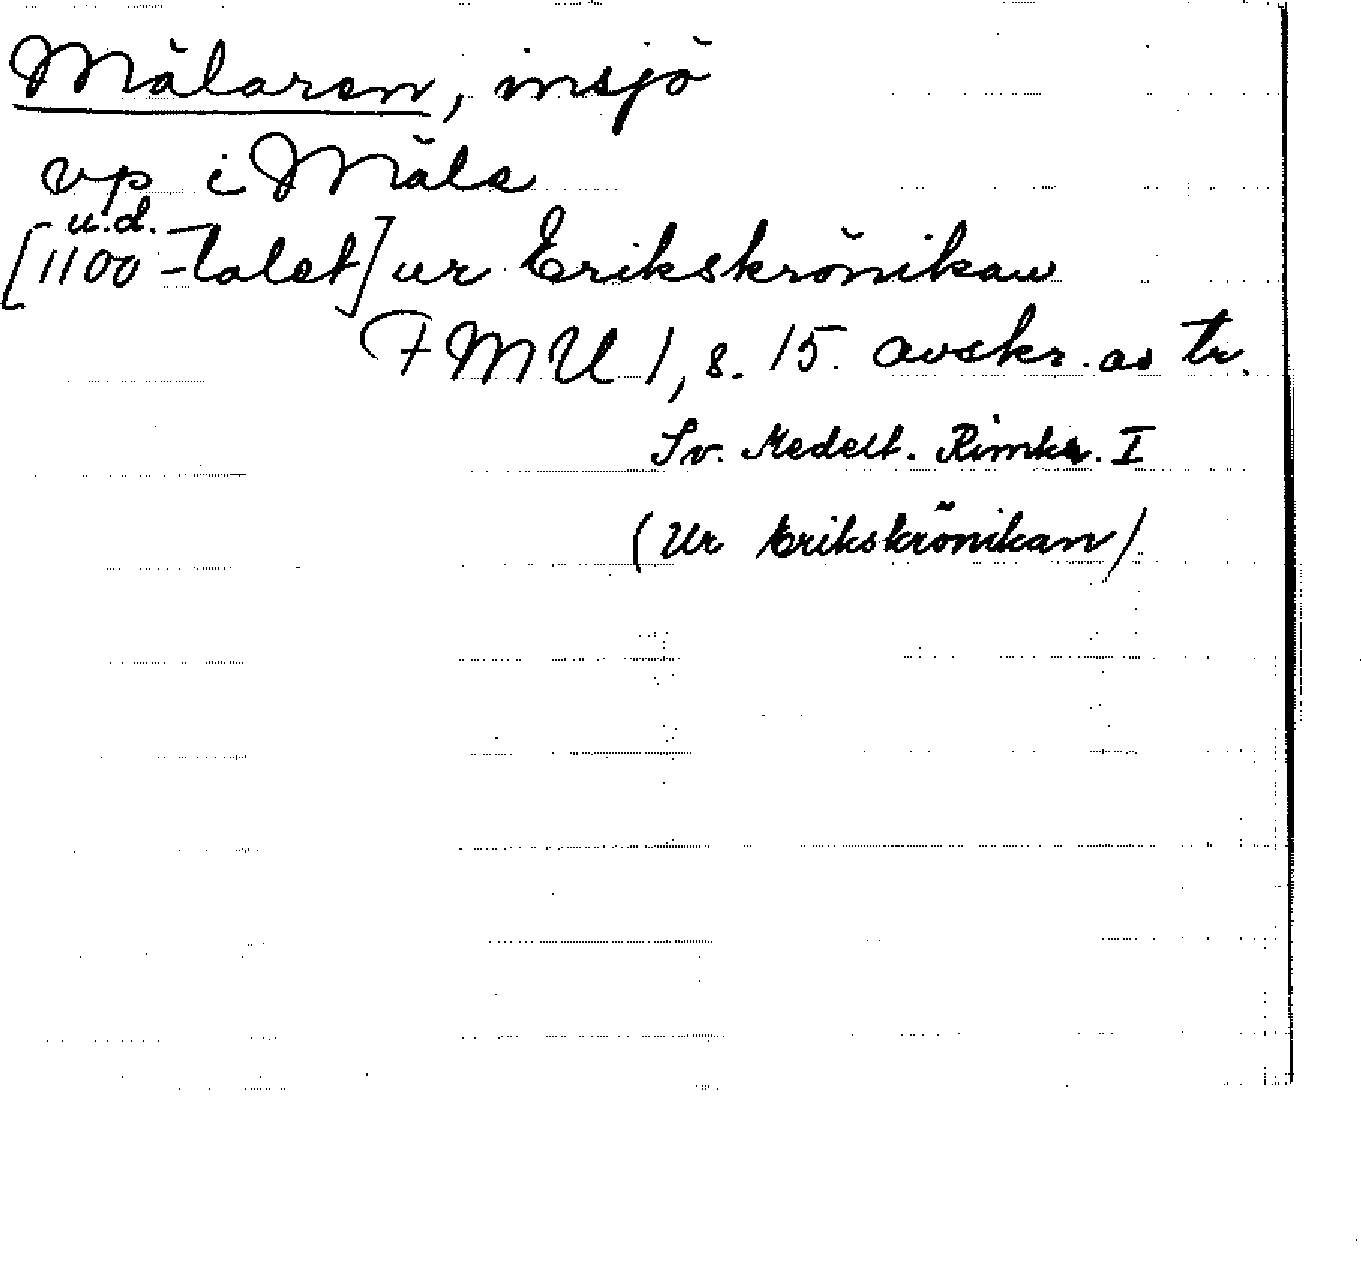 Mälaren, insjö
vp i Mäla
u.d.
[1100-talet] ur Erikskrönikan
FMU 1, s. 15. avskr. av tr.
Sv. Medelt. Rimkr. I
(Ur Erikskrönikan)